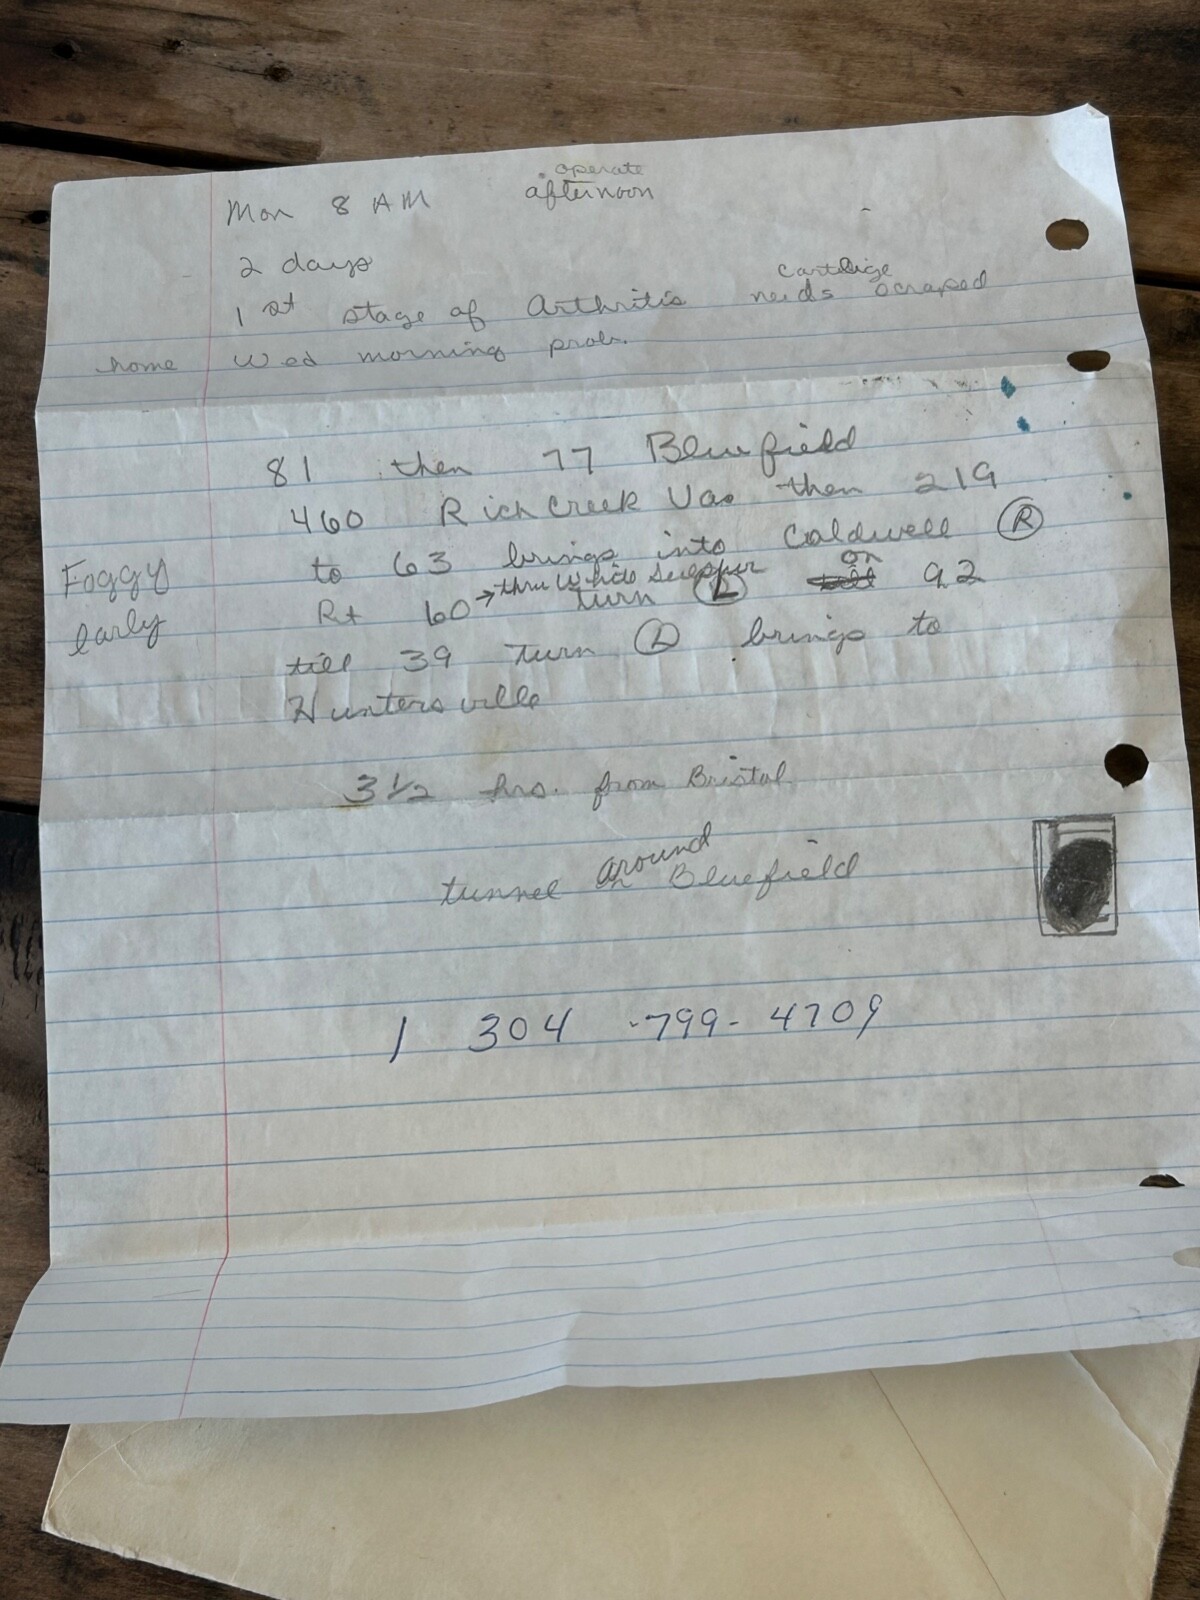 operate
Mon 8 AM afternoon
2 days
cartilige
1st stage of Arthritis needs scraped
home Wed morning prob.
81 then 77 Bluefield
460 Rich Creek Va. then 219
to 63 brings into Caldwell R
Foggy early
on
Rt 60 → thru White Sulphur turn L 92
till 39 turn L brings to
Huntersville
3 1/2 hrs. from Bristol
around
tunnel Bluefield
1 304 -799- 4709